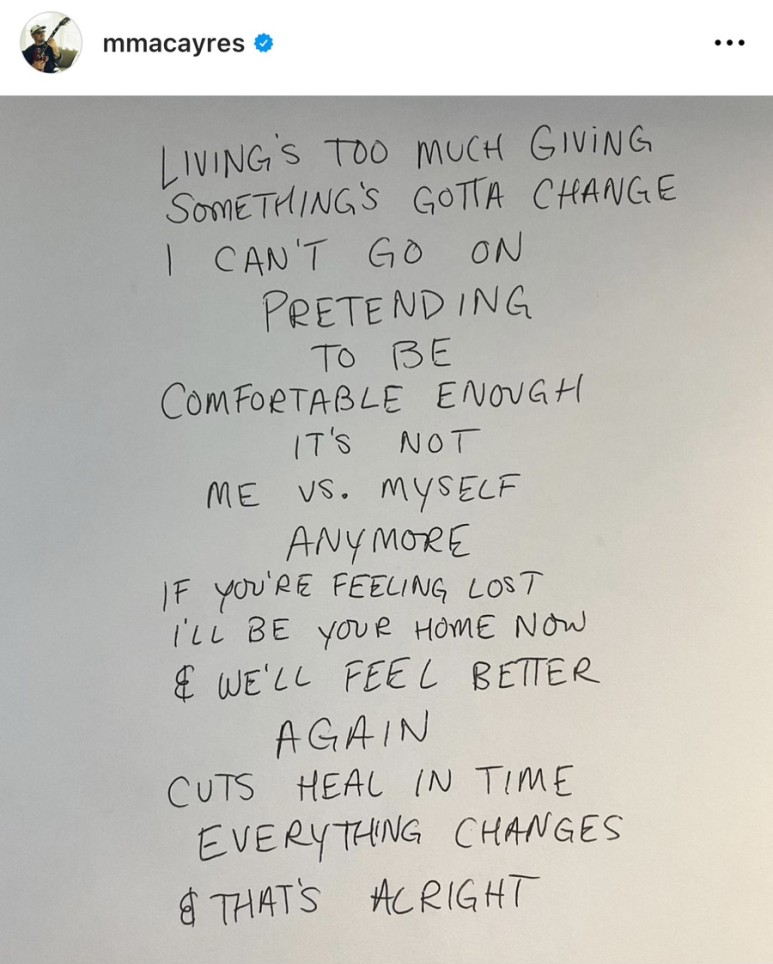 mmacayres
LIVING'S TOO MUCH GIVING
SOMETHING'S GOTTA CHANGE
I CAN'T GO ON
PRETENDING
TO BE
COMFORTABLE ENOUGH
IT'S NOT
ME VS. MYSELF
ANYMORE
IF YOU'RE FEELING LOST
I'LL BE YOUR HOME NOW
& WE'LL FEEL BETTER
AGAIN
CUTS HEAL IN TIME
EVERYTHING CHANGES
& THAT'S ALRIGHT